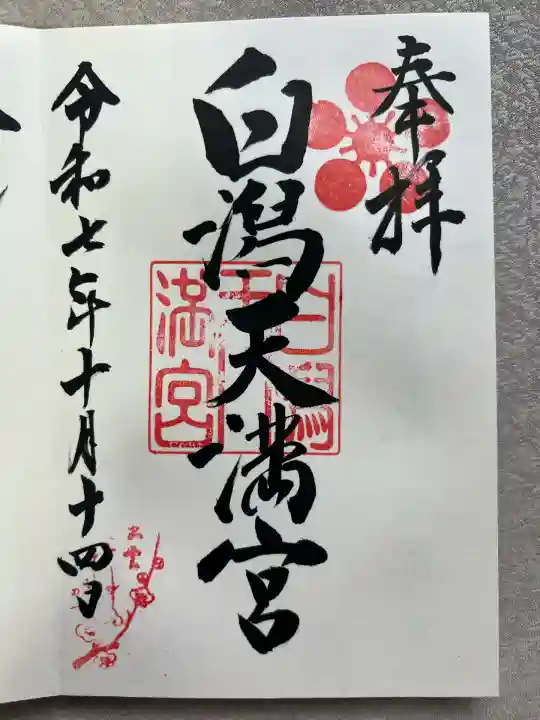 奉拝
白潟天満宮
白潟
天
満宮
令和七年十月十四日
出雲